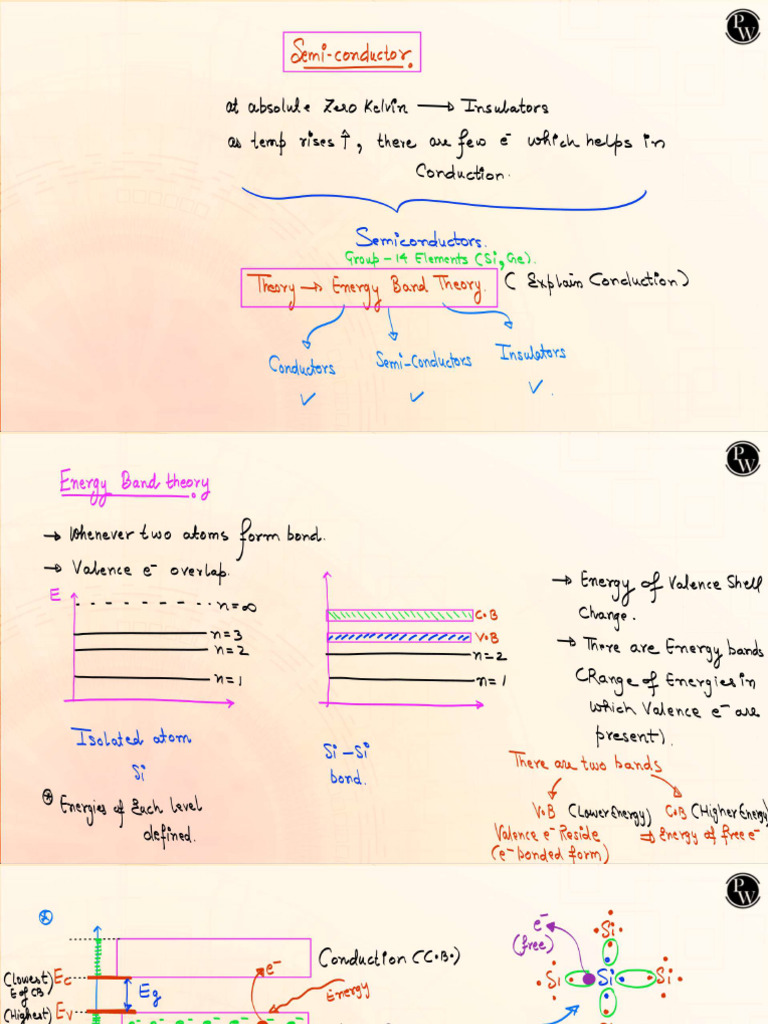 PW
Semi-conductor.
at absolute Zero Kelvin → Insulators
as temp rises ↑, there are few e⁻ which helps in
Conduction.
Semiconductors.
Group-14 Elements (Si, Ge).
Theory → Energy Band Theory. (Explain Conduction)
Conductors Semi-Conductors Insulators
✓ ✓ ✓.
PW
Energy Band theory
→ Whenever two atoms form bond.
→ Valence e⁻ overlap.
E
n=∞
n=3
n=2
n=1
Isolated atom
Si
⊛ Energies of Each level
defined.
C.B
V.B
n=2
n=1
Si-Si
bond.
→ Energy of Valence Shell
Change.
→ There are Energy bands
(Range of Energies in
which Valence e⁻ are
present).
There are two bands
V.B (Lower Energy) C.B (Higher Energy)
Valence e⁻ Reside ⇒ Energy of free e⁻
(e⁻ bonded form)
PW
Conduction (C.B.)
(lowest) Ec
E of CB
Eg
(Highest) Ev
e⁻
Energy
e⁻
(free)
Si
Si Si Si
Si